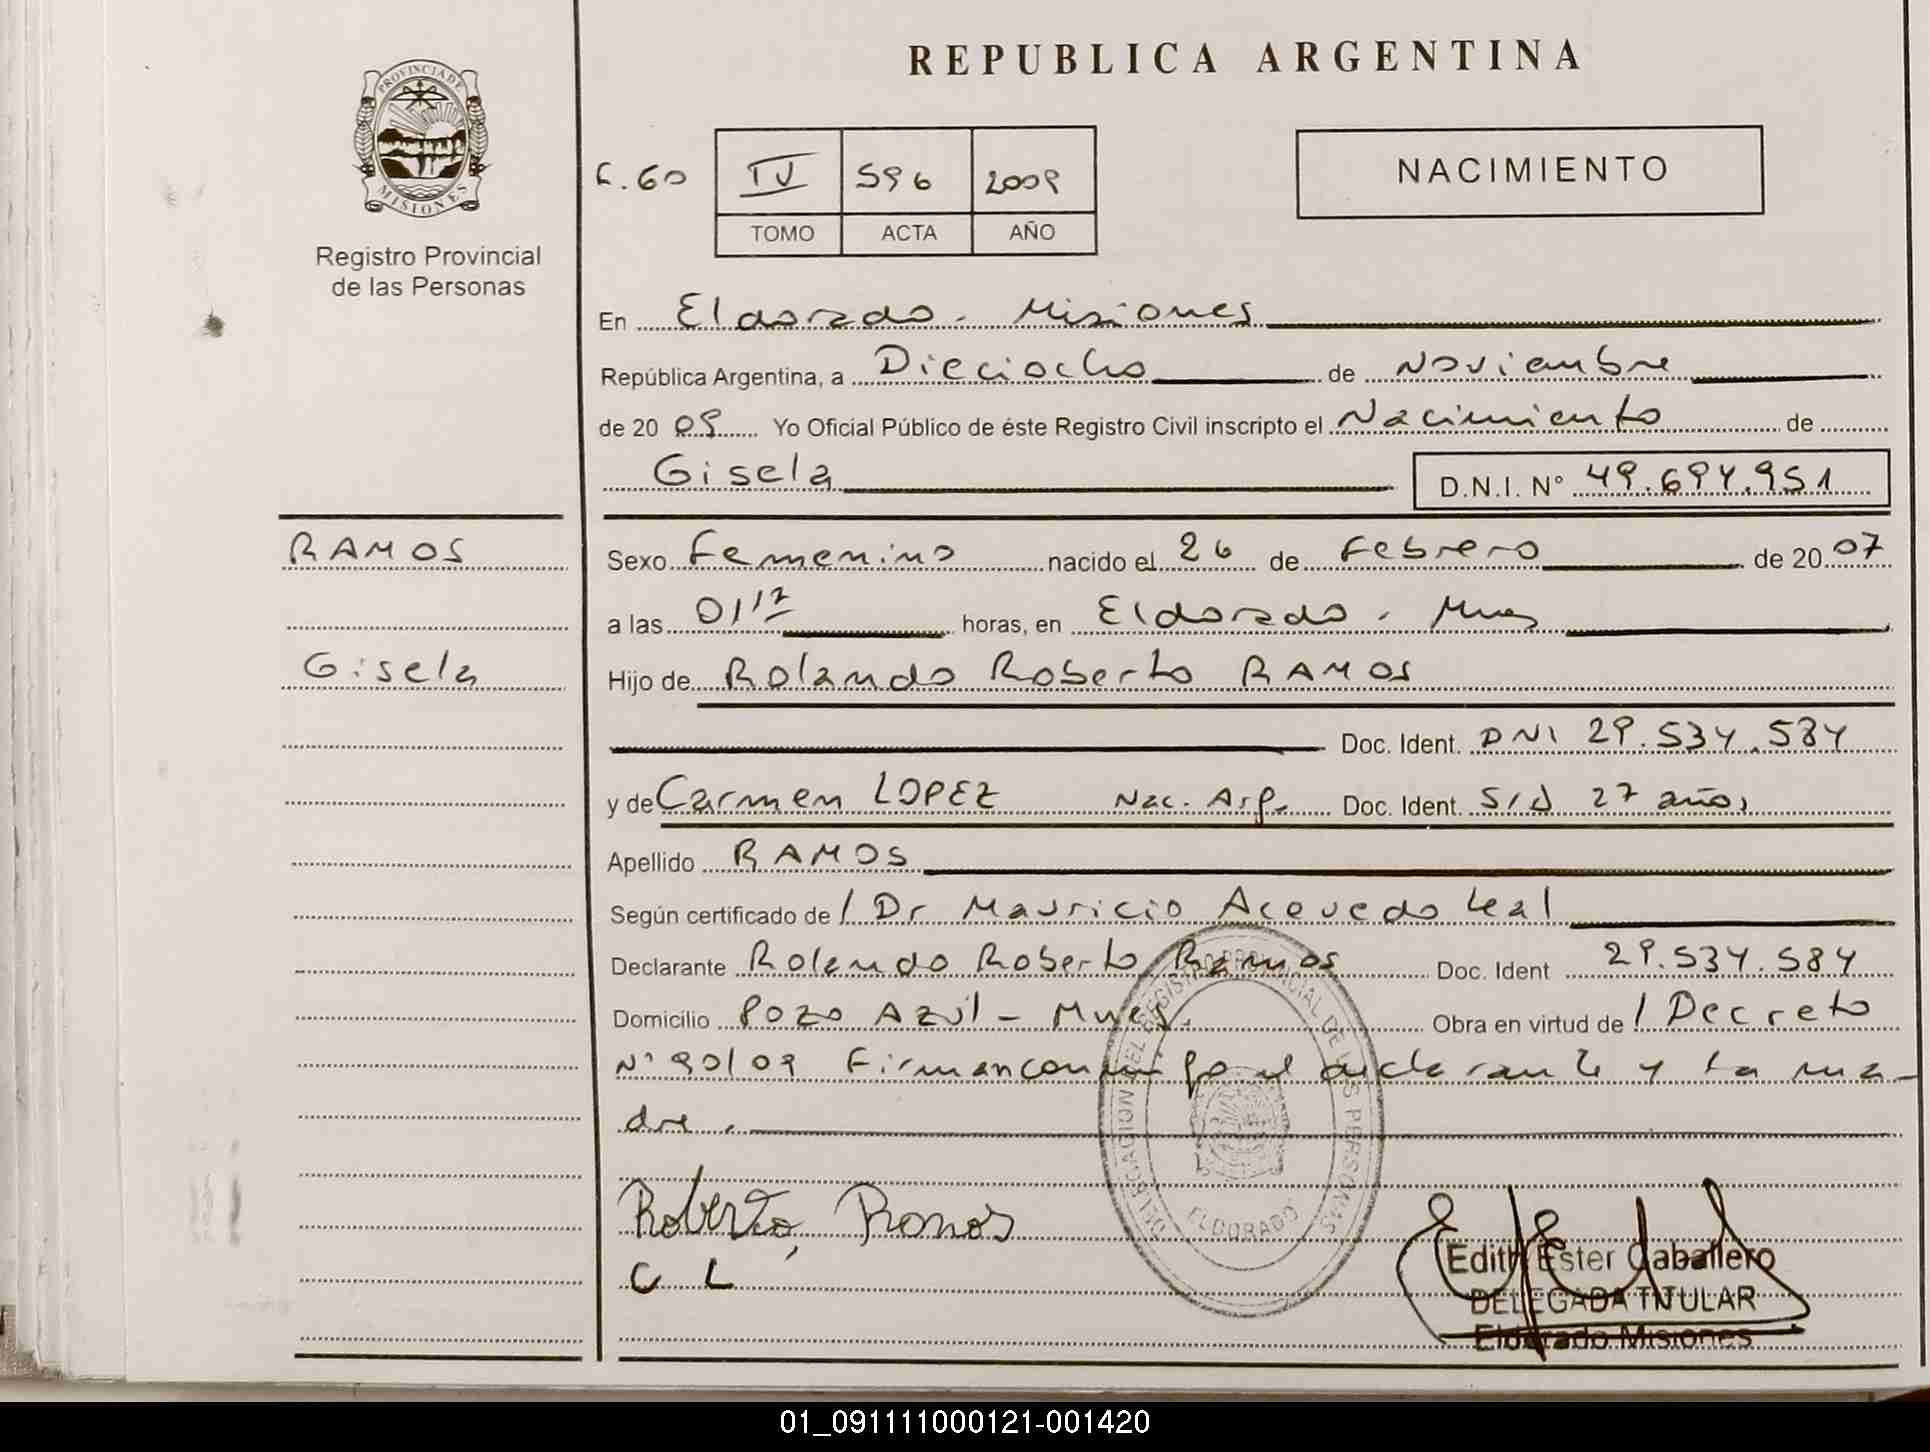 REPUBLICA ARGENTINA
PROVINCIA DE MISIONES
Registro Provincial
de las Personas
F. 60
IV 596 2009
TOMO ACTA AÑO
NACIMIENTO
En Eldorado - Misiones
República Argentina, a Dieciocho de Noviembre
de 20 09 Yo Oficial Público de éste Registro Civil inscripto el Nacimiento de
Gisela D.N.I. Nº 49.694.951
RAMOS
Gisela
Sexo Femenino nacido el 26 de Febrero de 20 07
a las 01,17 horas, en Eldorado - Mnes
Hijo de Rolando Roberto RAMOS
Doc. Ident. DNI 29.534.584
y de Carmen LOPEZ Nac. Arg. Doc. Ident. S/d 27 años
Apellido RAMOS
Según certificado de / Dr Mauricio Acevedo Leal
Declarante Rolando Roberto Ramos Doc. Ident 29.534.584
Domicilio Pozo Azúl - Mnes. Obra en virtud de / Decreto
Nº 90/09 Firman conmigo el declarante y la ma-
dre.
DELEGACION DEL REGISTRO PROVINCIAL DE LAS PERSONAS
ELDORADO
Roberto, Ramos
C L
Edith Ester Caballero
DELEGADA TITULAR
Eldorado Misiones
01_091111000121-001420